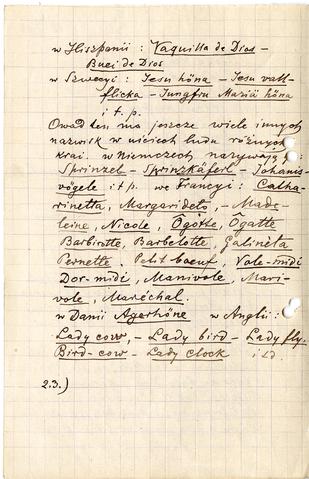 w Hiszpanii : Vaquilla de Dios -
Buei de Dios
w Szwecyi : Jesu höna - Jesu vall-
flicka - Jungfru Mariä höna
i t. p.
Owad ten ma jeszcze wiele innych
nazwisk w ustach ludu różnych
krai. w Niemczech nazywają :
Sprinzel - Sprinzkäferl - Johanis-
vögele i t p. we Francyi : Catha-
rinetta, Margarideto, - Made-
leine, Nicole, Ôgotte, Ôgatte
Barbirotte, Barbelotte, Galinéta
Pernette. Petit boeuf, Vole-midi
Dor-midi, Manivole, Mari-
vole, Maréchal.
w Danii Agerhöne w Anglii :
Lady cow, - Lady bird - Lady fly.
Bird-cow - Lady clock i t.d.
2.3.)